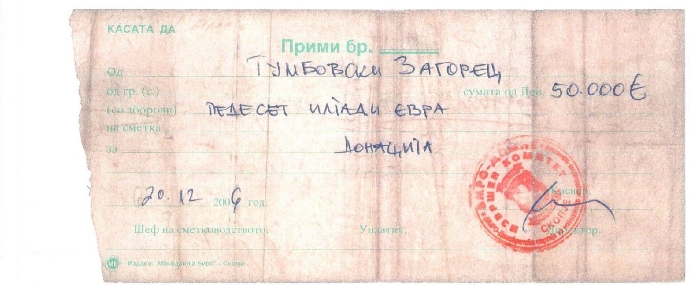 КАСАТА ДА
Прими бр.
Од ТУМБОВСКИ ЗАГОРЕЦ
од гр. (с.) сумата од Ден. 50.000€
(со зборови) ПЕДЕСЕТ ИЛЈАДИ ЕВРА
на сметка
за ДОНАЦИЈА
20.12 2006 год.
ИЗВРШЕН КОМИТЕТ
СКОПЈЕ
Шеф на сметководството. Уплатил.
Издава: "Македонка Биро" - Скопје